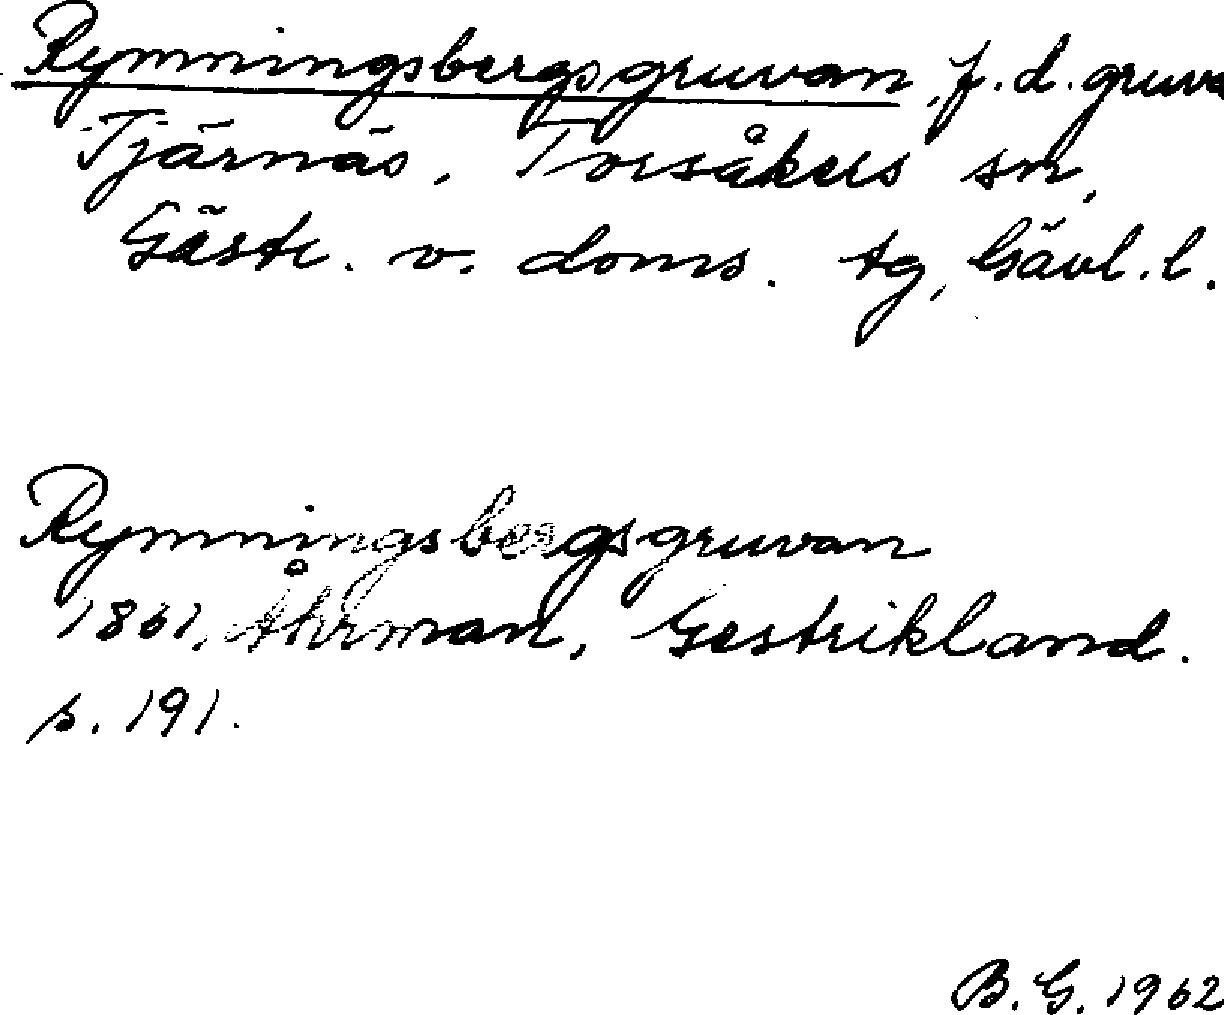 Rymningsbergsgruvan, f.d. gruva
Tjärnäs, Torsåkers sn,
Gästr. v. doms. tg, Gävl. l.
Rymningsbergsgruvan
1861, Åhrman, Gestrikland.
s. 191.
B. G. 1962